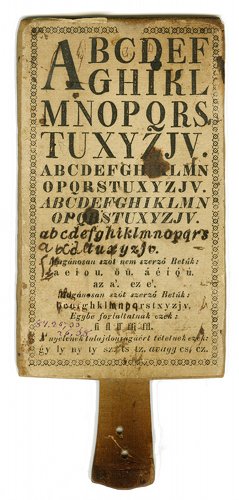 ABCDEF
GHIKL
MNOPQRS
TUXYZJV.
ABCDEFGHIKLMN
OPQRSTUXYZJV.
ABCDEFGHIKLMN
OPQRSTUXYZJV.
abcdefghiklmnopqrs
tuxyzjv.
Magánosan szót nem szerző Betűk:
a e i o u, öü, á é í ó ú.
az a', ez e'.
Magánosan szót szerző Betűk:
Egybe forlaltatnak ezek:
nyelvnek tulajdonságáért tétetnek ezek:
gy ly ny ty sz ts tz. avagy cs, cz.